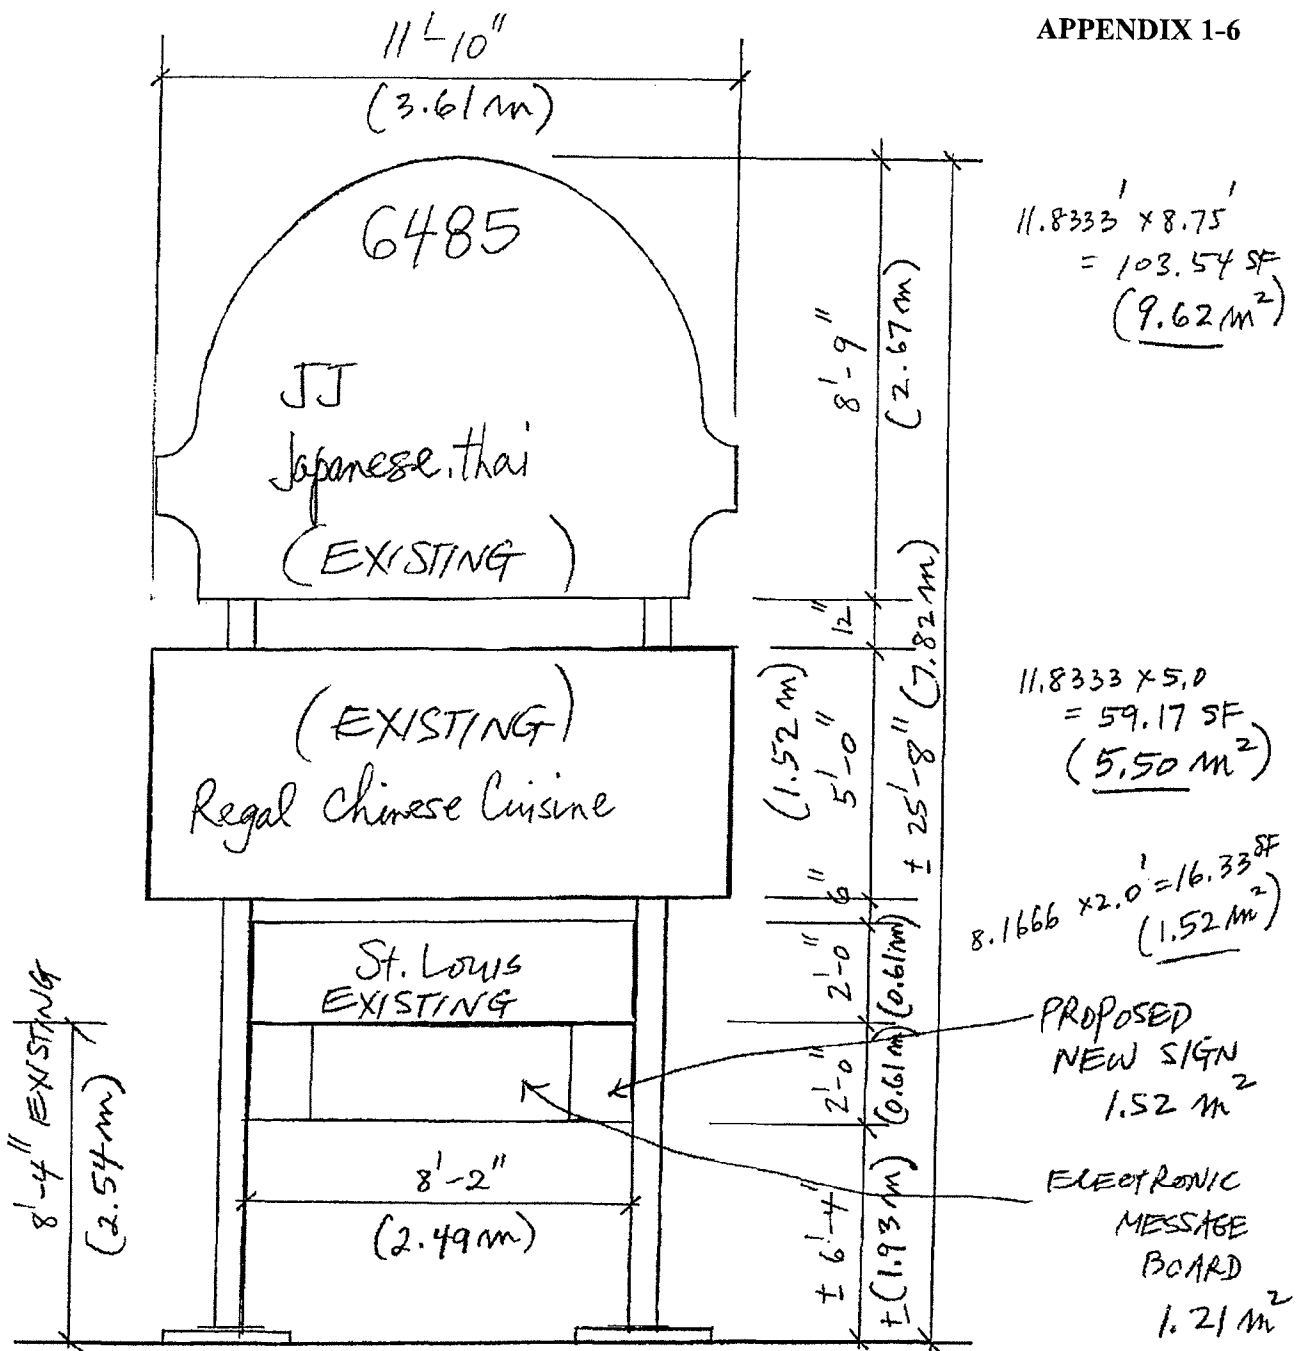 APPENDIX 1-6
11'-10"
(3.61 m)
6485
JJ
Japanese.thai
(EXISTING )
(EXISTING)
Regal Chinese Cuisine
St. Louis
EXISTING
8'-2"
(2.49 m)
8'-4" EXISTING
(2.54 m)
8'-9"
(2.67 m)
12"
5'-0"
(1.52 m)
6"
2'-0"
(0.61m)
2'-0"
(0.61m)
± 6'-4"
±(1.93 m)
± 25'-8" (7.82 m)
11.8333' x 8.75'
= 103.54 SF
(9.62 m²)
11.8333 x 5.0
= 59.17 SF
(5.50 m²)
8.1666 x2.0'=16.33 SF
(1.52 m²)
PROPOSED
NEW SIGN
1.52 m²
ELECTRONIC
MESSAGE
BOARD
1.21 m²